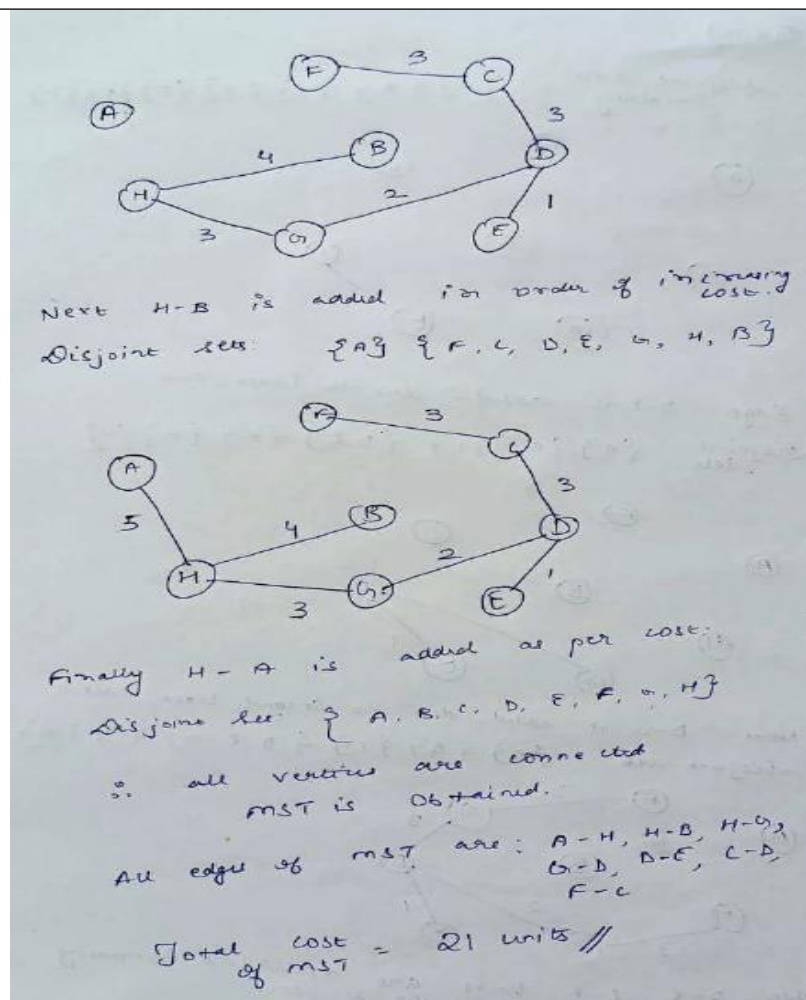 F 3 C
A
3
4 B D
H 2
3 G E 1
Next H-B is added in order of increasing
cost.
Disjoint sets: {A} { F, C, D, E, G, H, B}
F 3 C
A
3
5 4 B D
2
H G 1
3 E
Finally H-A is added as per cost.
Disjoint set: { A, B, C, D, E, F, G, H}
∴ all vertices are connected
MST is Obtained.
All edges of MST are: A-H, H-B, H-G,
G-D, D-E, C-D,
F-C
Total cost = 21 units //
of MST